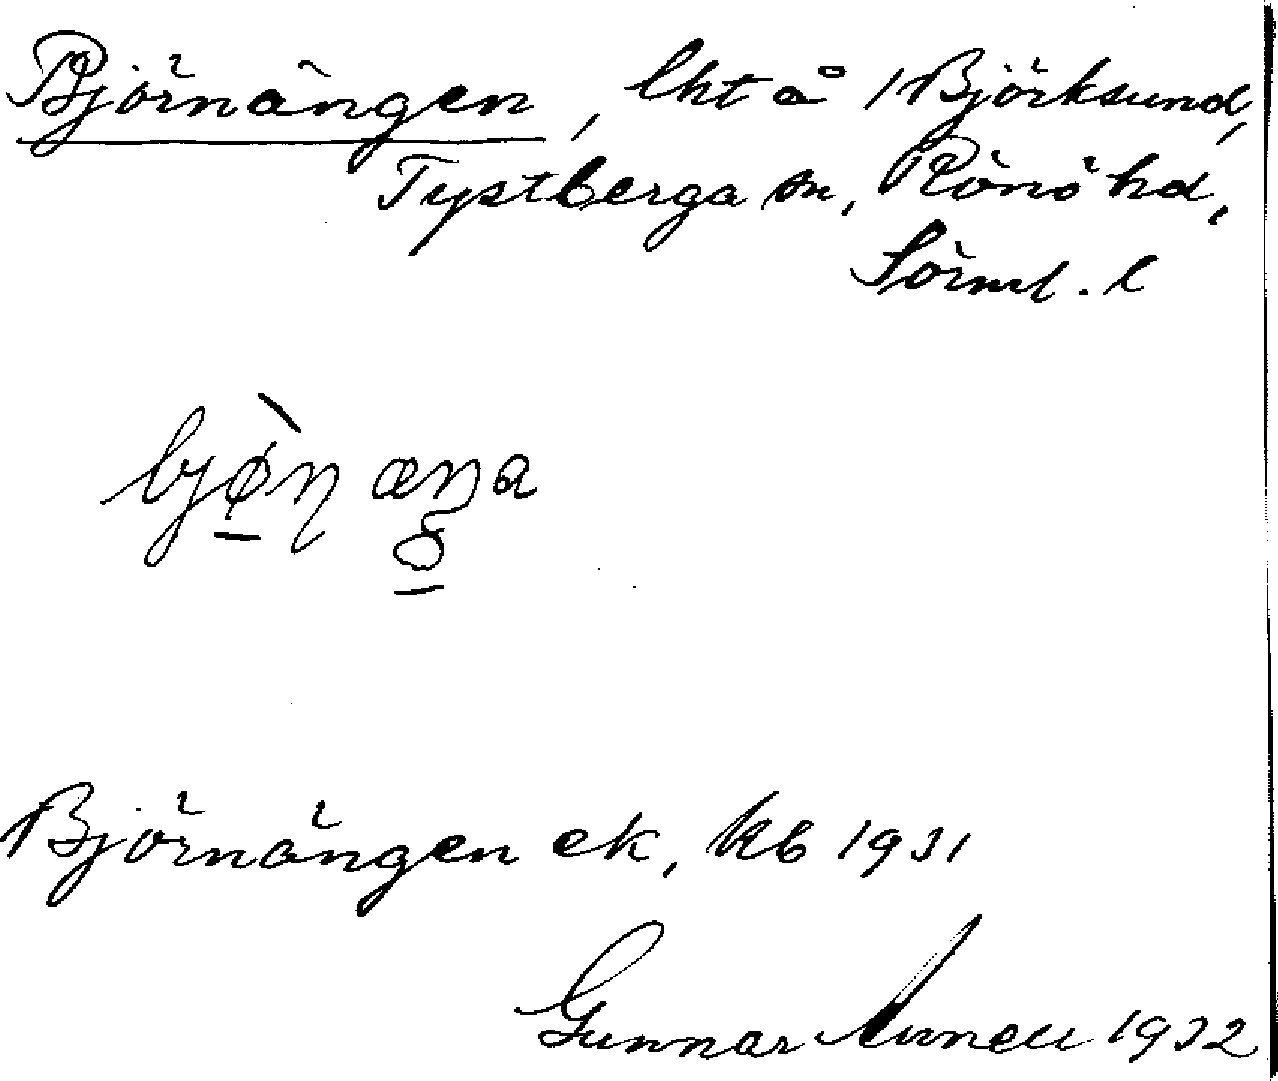 Björnängen, lht å 1 Björksund,
Tystberga sn, Rönö hd,
Sörml. l
Björnängen ek, kb 1931
Gunnar 1932